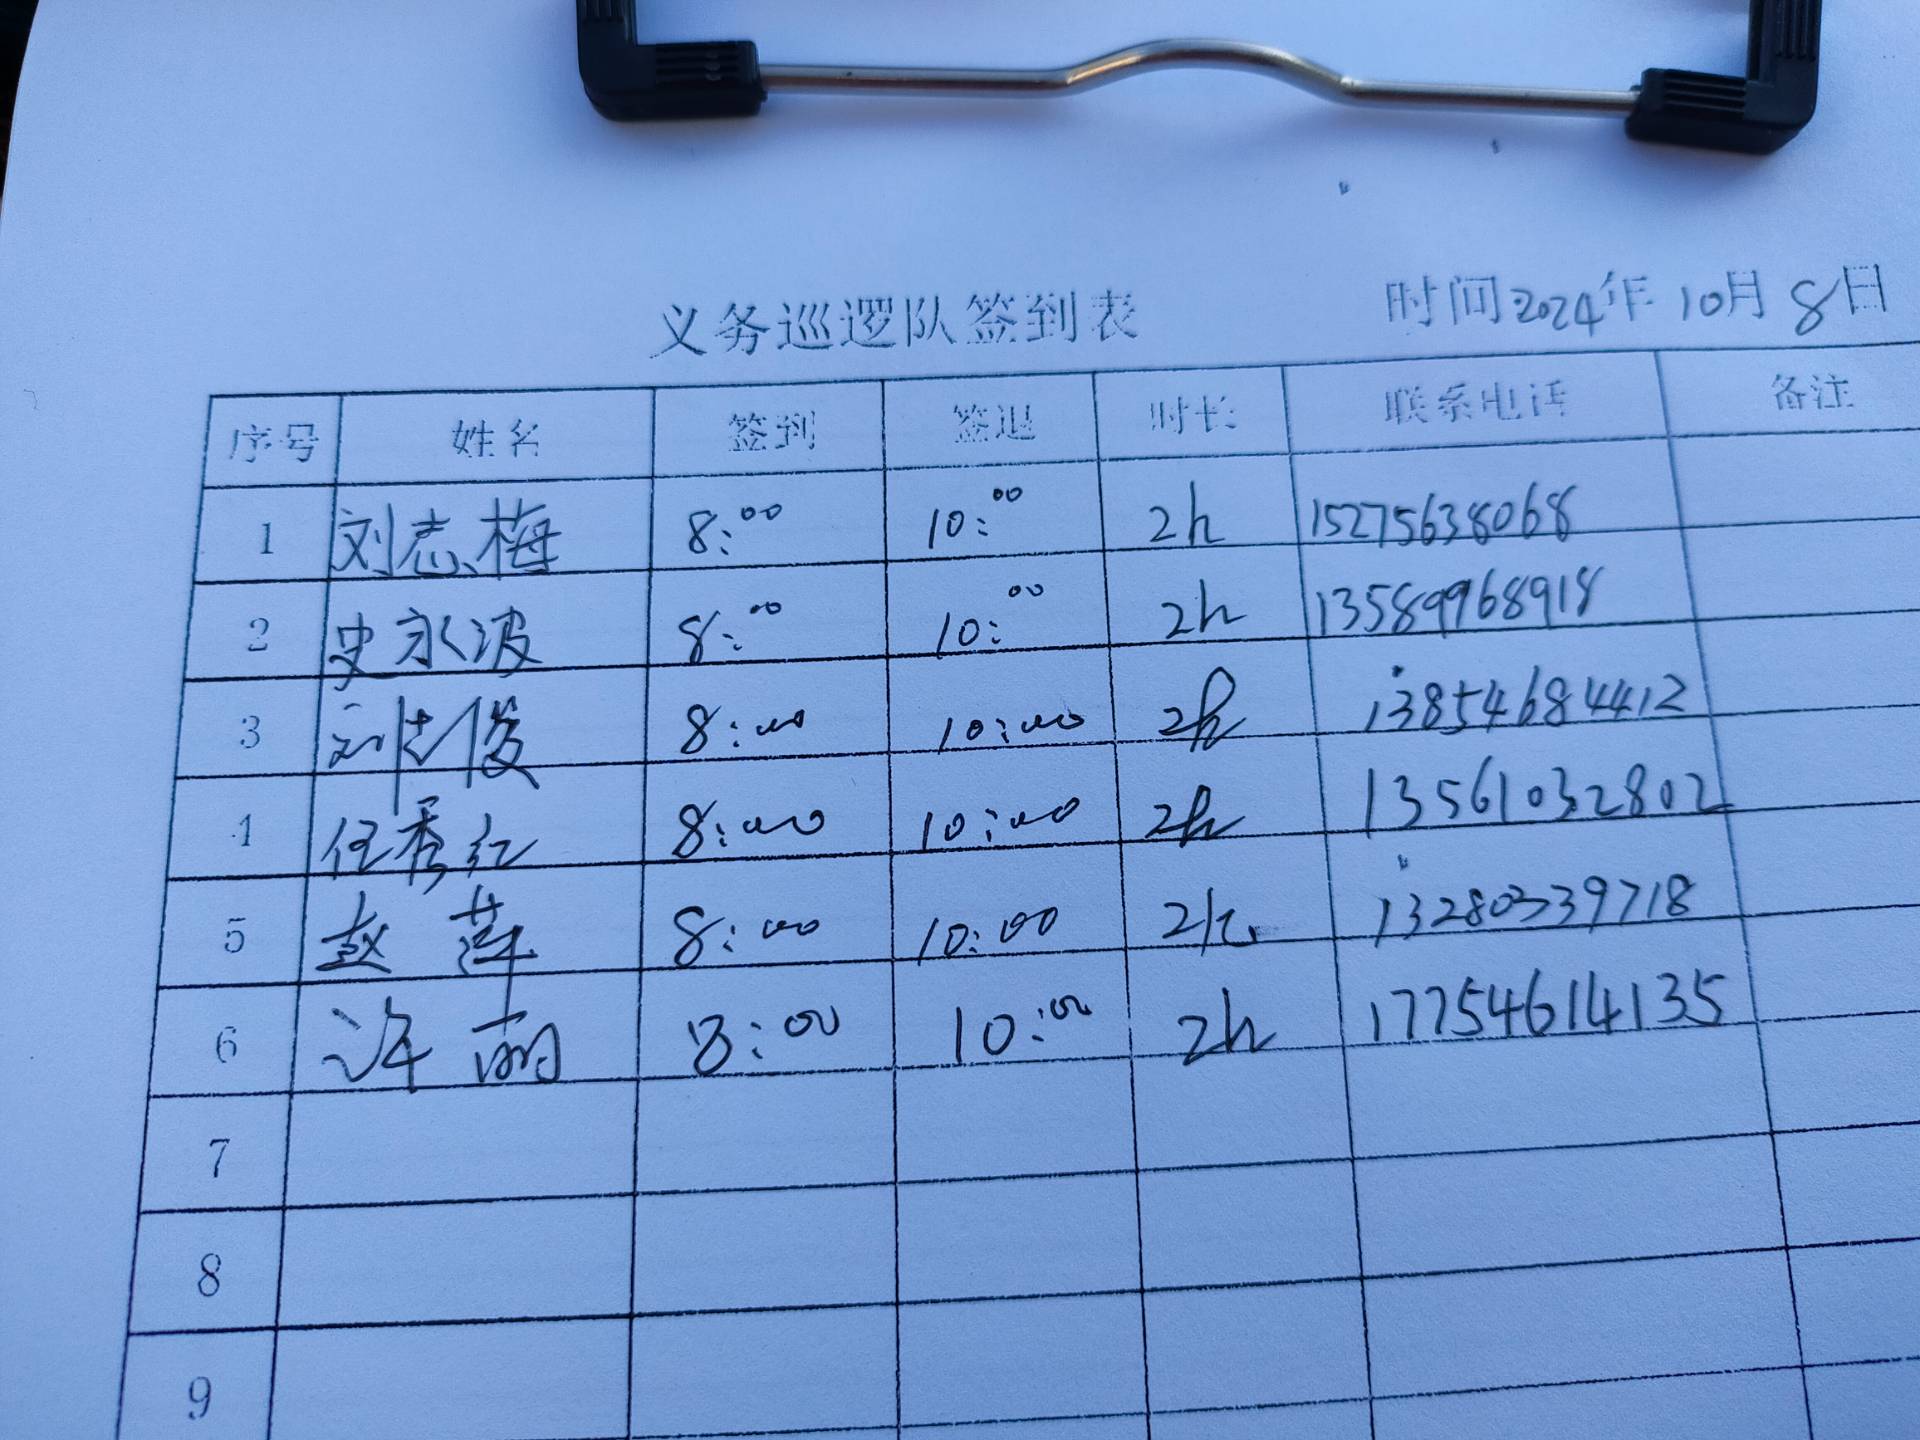 义务巡逻队签到表 时间2024年10月8日
序号 姓名 签到 签退 时长 联系电话 备注
1 刘志梅 8:00 10:00 2h 15275638068
2 史永波 8:00 10:00 2h 13589968918
3 8:00 10:00 2h 13854684412
4 任秀红 8:00 10:00 2h 13561032802
5 赵萍 8:00 10:00 2h 13280339718
6 许丽 8:00 10:00 2h 17754614135
7
8
9